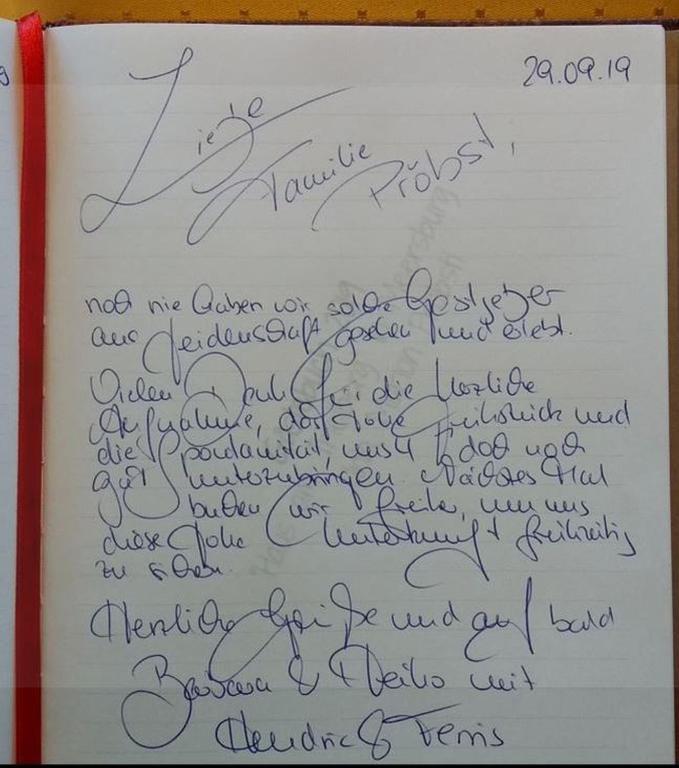 29.09.19
Liebe
Familie
Pröbst,
noch nie haben wir solche Gastgeber
aus Leidenschaft gesehen und erlebt.
Vielen Dank für die herzliche
Aufnahme, das tolle Frühstück und
die Spontanität, uns 4 doch noch
gut unterzubringen. Nächstes Mal
buchen wir früher, um uns
diese tolle Unterkunft frühzeitig
zu sichern.
Herzliche Grüße und auf bald
Barbara & Heiko mit
Hendric &